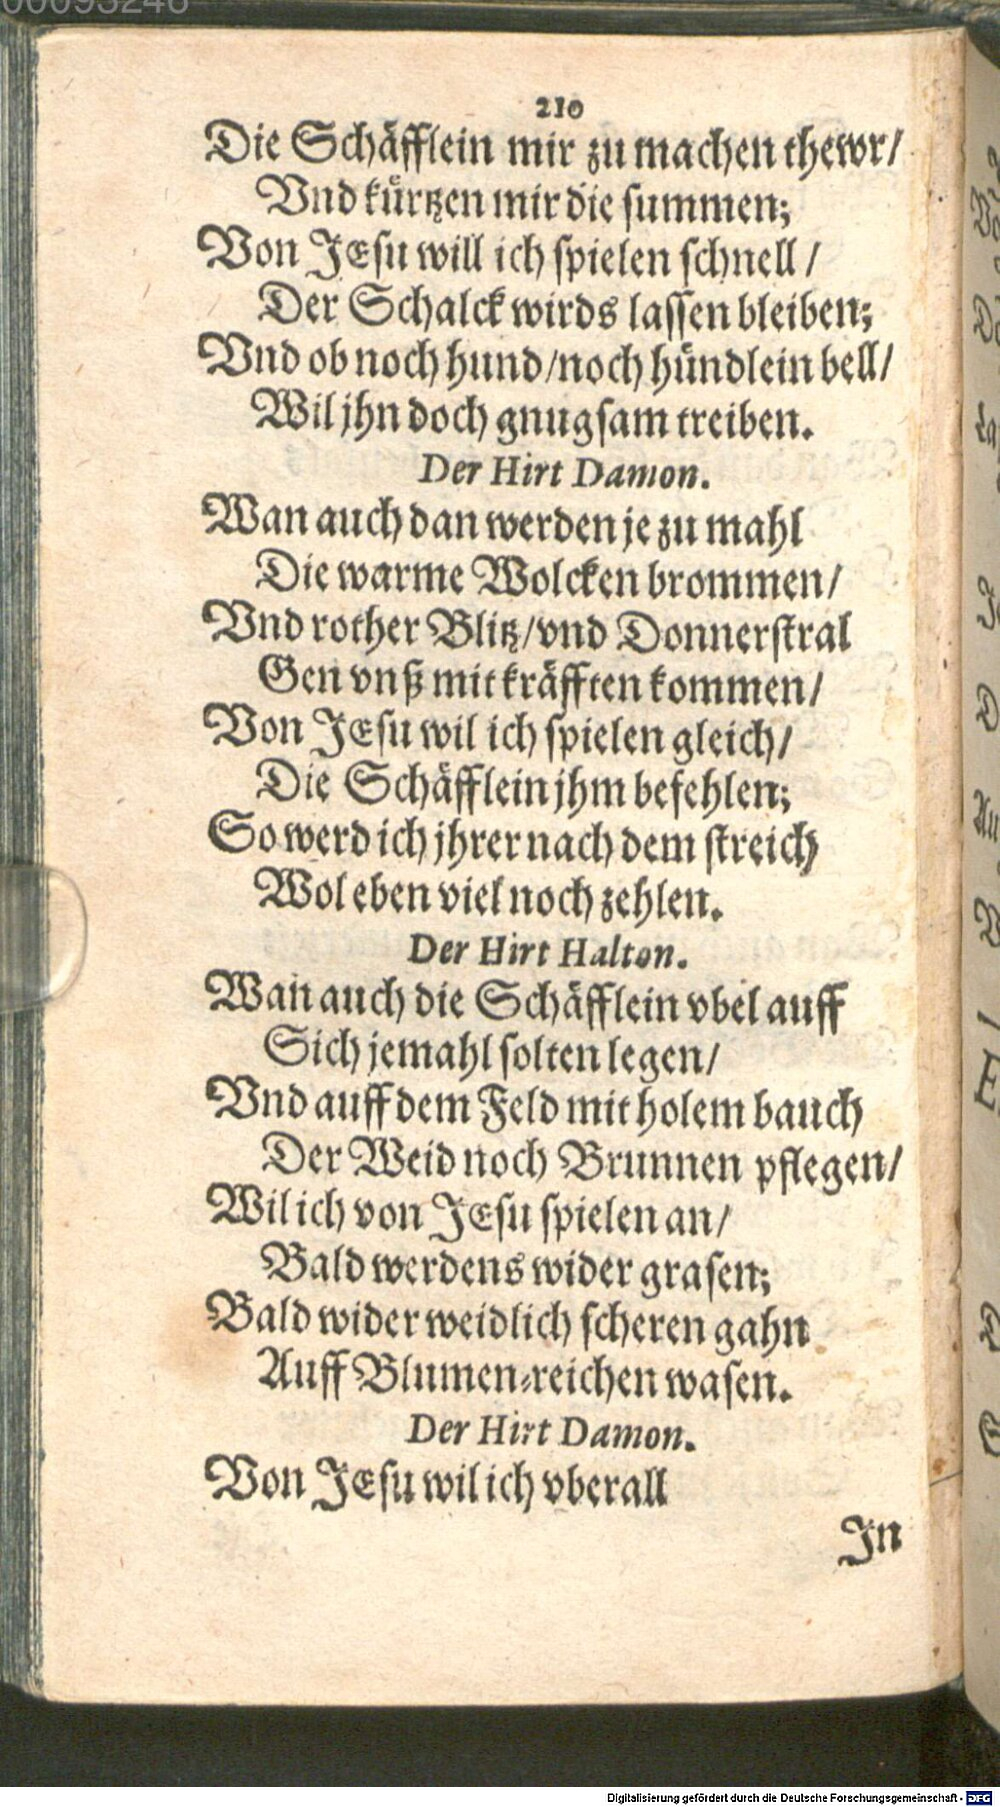 00093246
210
Die Schäfflein mir zu machen thewr/
Vnd kürtzen mir die summen;
Von JEsu will ich spielen schnell/
Der Schalck wirds lassen bleiben;
Vnd ob noch hund/noch hündlein bell/
Wil jhn doch gnugsam treiben.
Der Hirt Damon.
Wan auch dan werden je zu mahl
Die warme Wolcken brommen/
Vnd rother Blitz/vnd Donnerstral
Gen vnß mit kräfften kommen/
Von JEsu wil ich spielen gleich/
Die Schäfflein jhm befehlen;
So werd ich jhrer nach dem streich
Wol eben viel noch zehlen.
Der Hirt Halton.
Wan auch die Schäfflein vbel auff
Sich jemahl solten legen/
Vnd auff dem Feld mit holem bauch
Der Weid noch Brunnen pflegen/
Wil ich von JEsu spielen an/
Bald werdens wider grasen;
Bald wider weidlich scheren gahn
Auff Blumen-reichen wasen.
Der Hirt Damon.
Von JEsu wil ich vberall
Jn
Digitalisierung gefördert durch die Deutsche Forschungsgemeinschaft - DFG